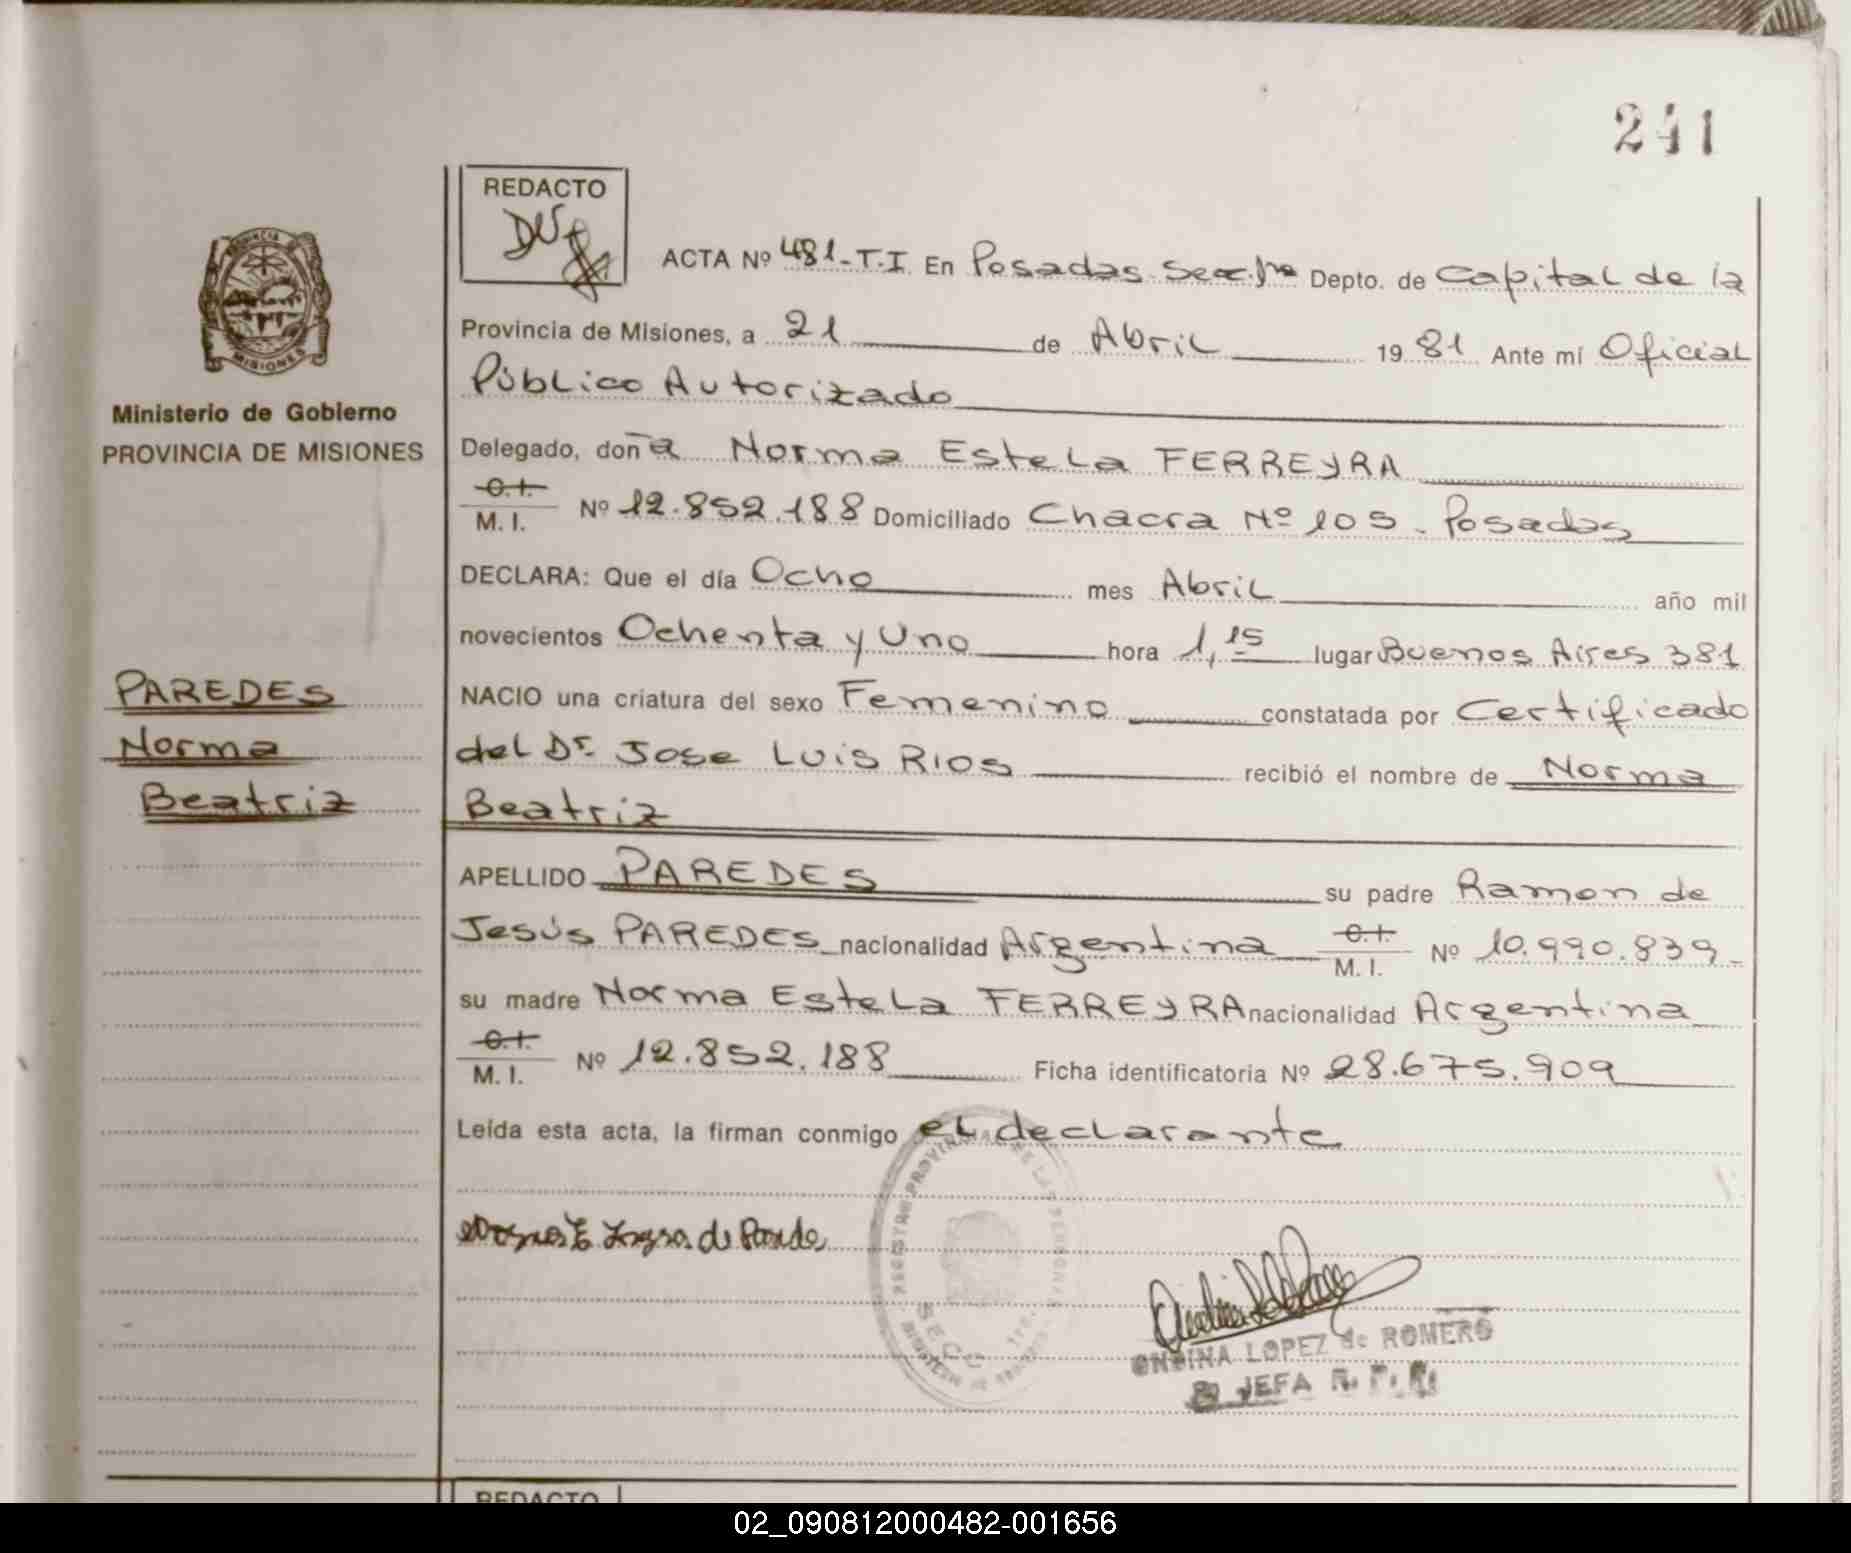 241
REDACTO
ACTA Nº 481-T.I. En Posadas Secc. 1ra Depto. de Capital de la
Provincia de Misiones, a 21 de Abril 1981 Ante mí Oficial
Público Autorizado
Ministerio de Gobierno
PROVINCIA DE MISIONES
Delegado, doña Norma Estela FERREYRA
C.I.
M. I. Nº 12.852.188 Domiciliado Chacra Nº 105 - Posadas
DECLARA: Que el día Ocho mes Abril año mil
novecientos Ochenta y Uno hora 1,15 lugar Buenos Aires 381
PAREDES
Norma
Beatriz
NACIO una criatura del sexo Femenino constatada por Certificado
del Dr. Jose Luis RIOS recibió el nombre de Norma
Beatriz
APELLIDO PAREDES su padre Ramon de
Jesús PAREDES nacionalidad Argentina C.I. M. I. Nº 10.990.839-
su madre Norma Estela FERREYRA nacionalidad Argentina
C.I.
M. I. Nº 12.852.188 Ficha identificatoria Nº 28.675.909
Leída esta acta, la firman conmigo el declarante
REGISTRO PROVINCIAL DE LAS PERSONAS
SECC. 1ra.
MISIONES
ONDINA LOPEZ de ROMERO
JEFA R. P.
REDACTO
02_090812000482-001656